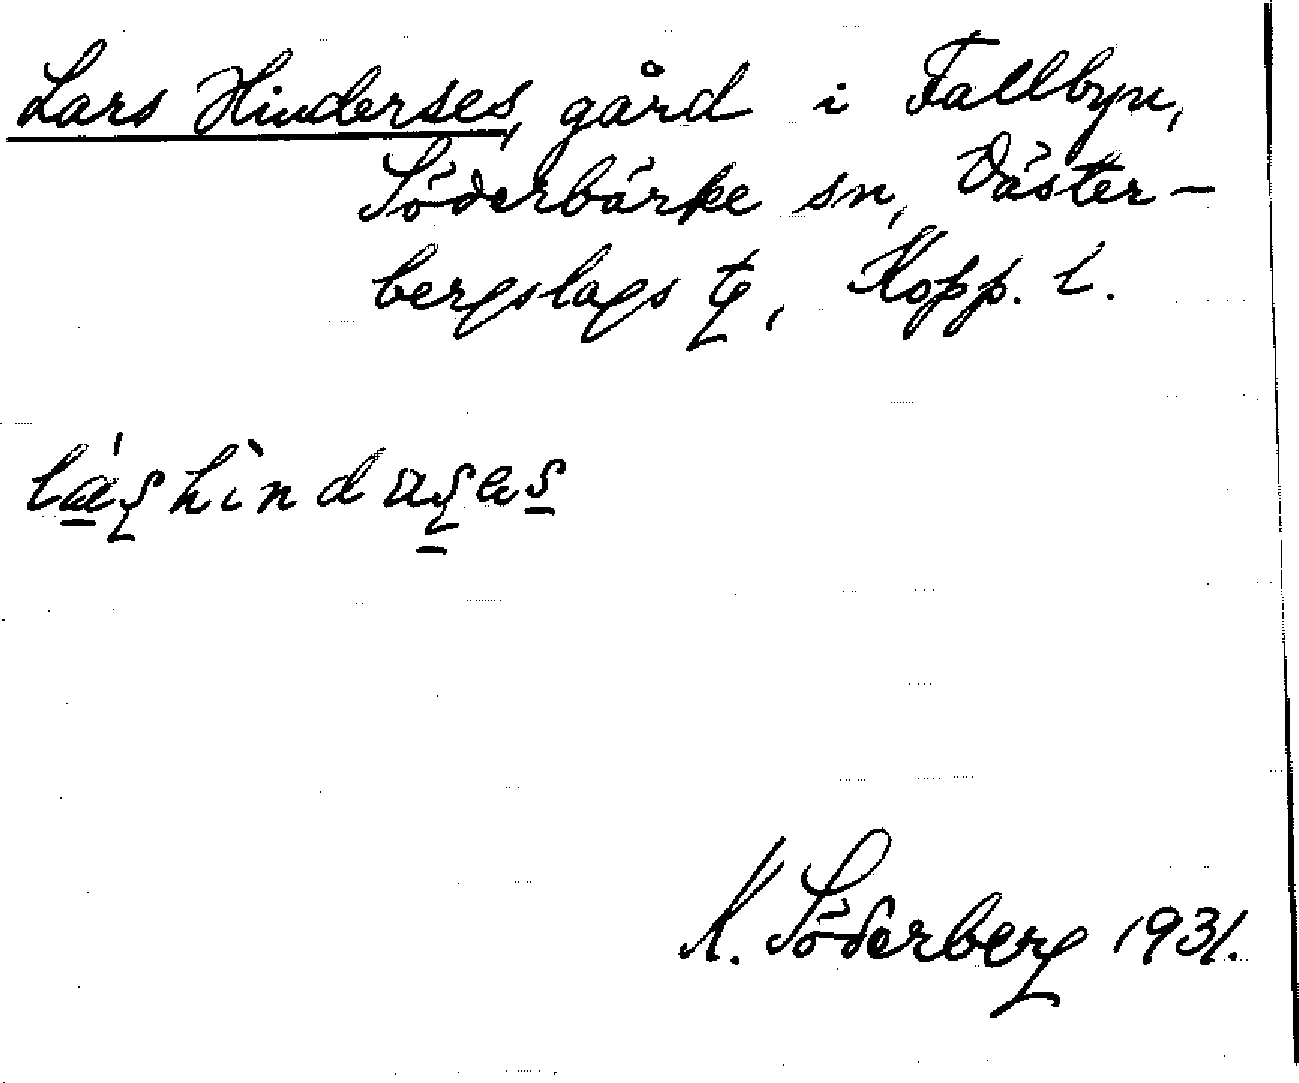 Lars Hinderses, gård i Fallbyn,
Söderbärke sn, Väster-
bergslags tg, Kopp. l.
K. Söderberg 1931.